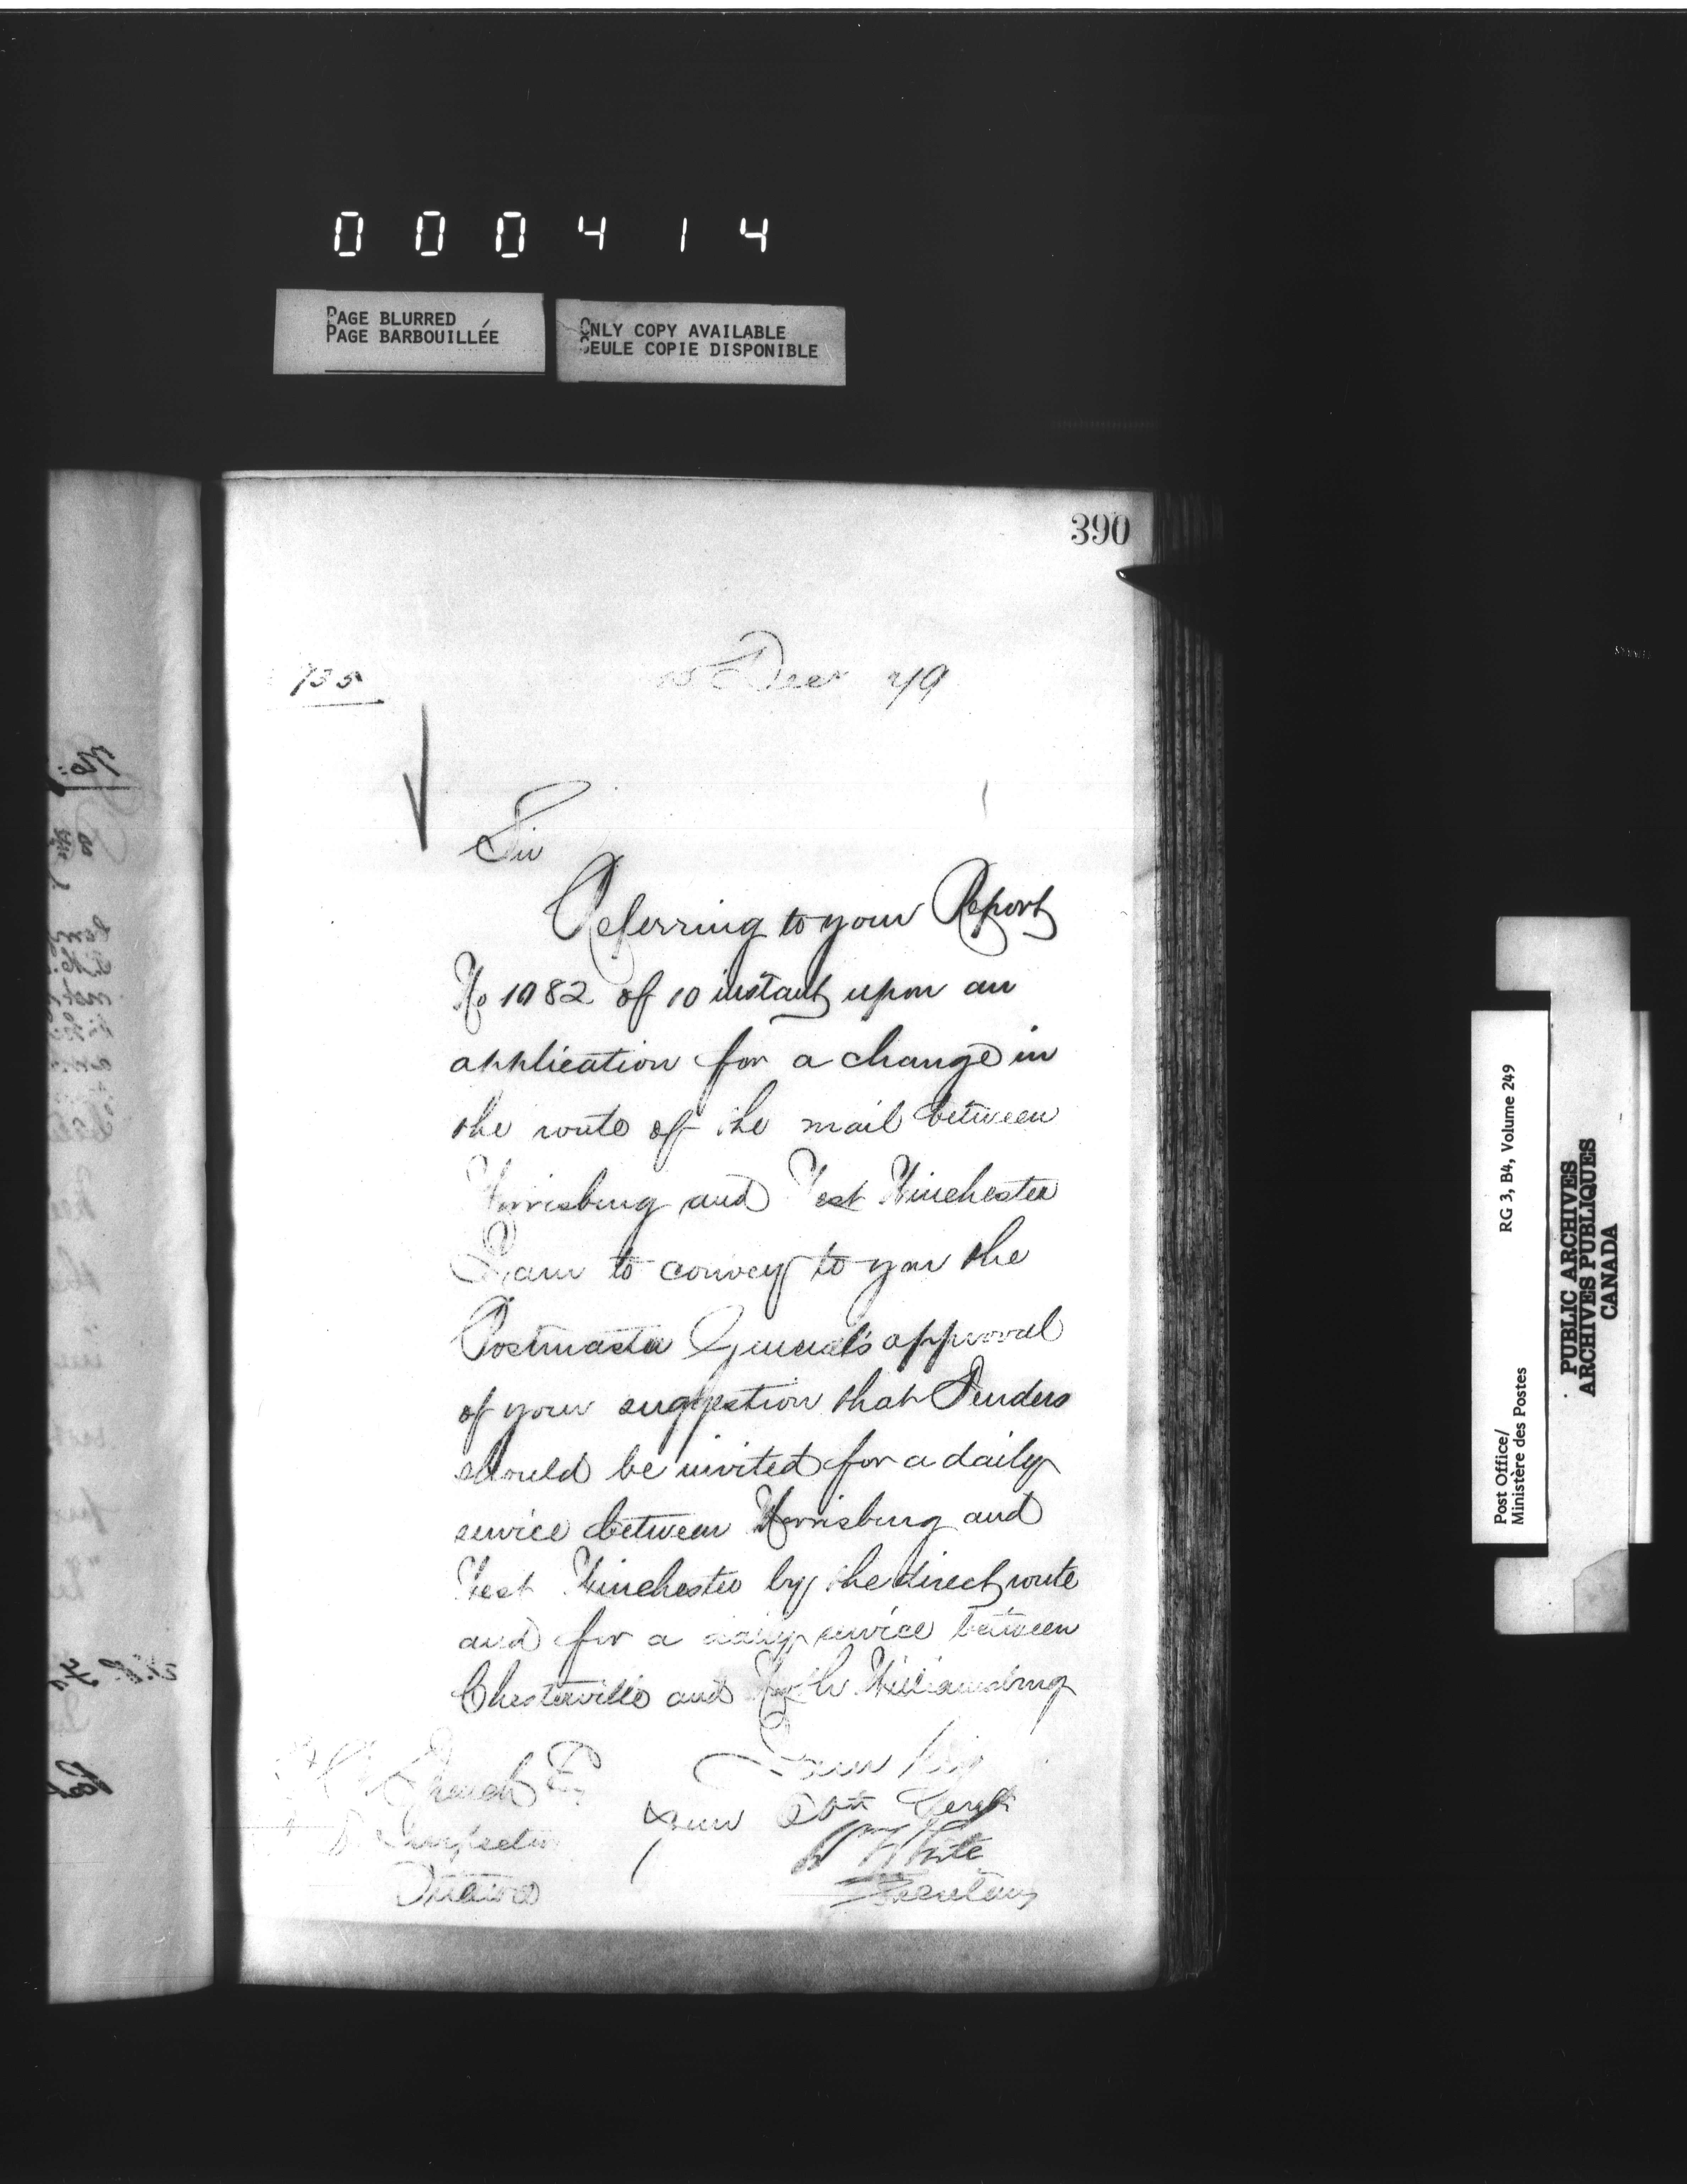 000414
PAGE BLURRED
PAGE BARBOUILLÉE
ONLY COPY AVAILABLE
SEULE COPIE DISPONIBLE
390
735
Decr 79
Sir
Referring to your Report
No 1082 of 10 instant upon an
application for a change in
the route of the mail between
Morrisburg and West Winchester
I am to convey to you the
Postmaster General's approval
of your suggestion that Tenders
should be invited for a daily
service between Morrisburg and
West Winchester by the direct route
and for a daily service between
Chesterville and North Williamsburg
I am Sir
Your Obt Servt
Wm White
Secretary
French Esq
P. O. Inspector
Ottawa
Post Office/
Ministère des Postes
RG 3, B4, Volume 249
PUBLIC ARCHIVES
ARCHIVES PUBLIQUES
CANADA